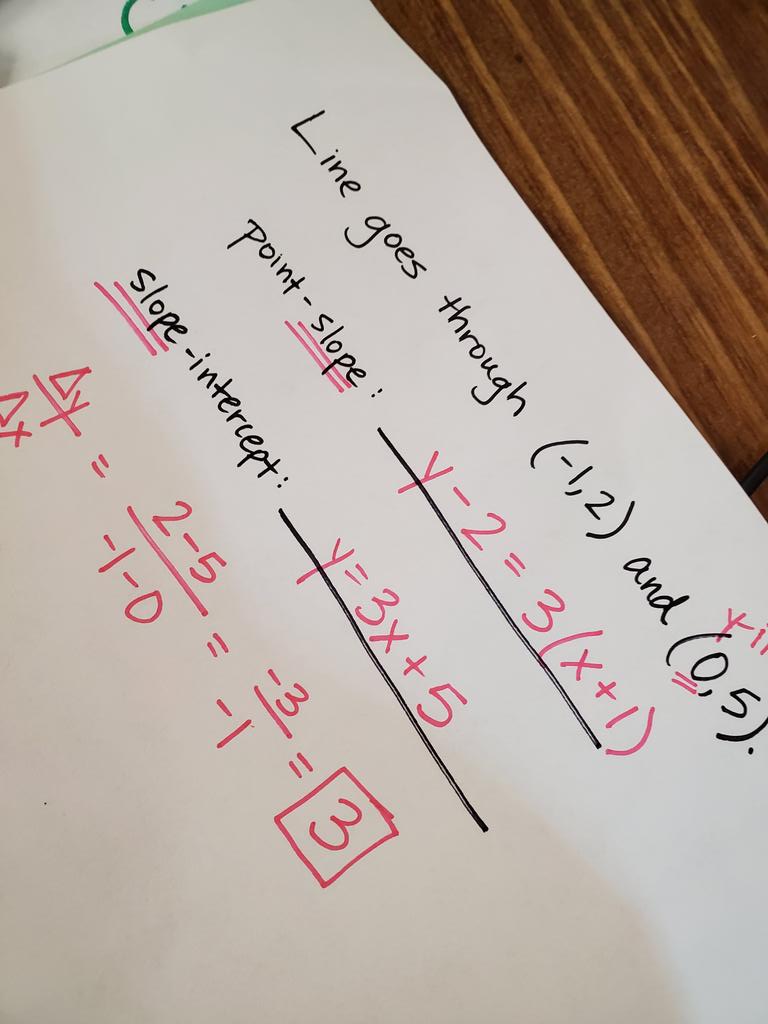 Line goes through (-1,2) and (0,5).
point-slope: y-2=3(x+1)
slope-intercept: y=3x+5
Δy/Δx = 2-5/-1-0 = -3/-1 = 3